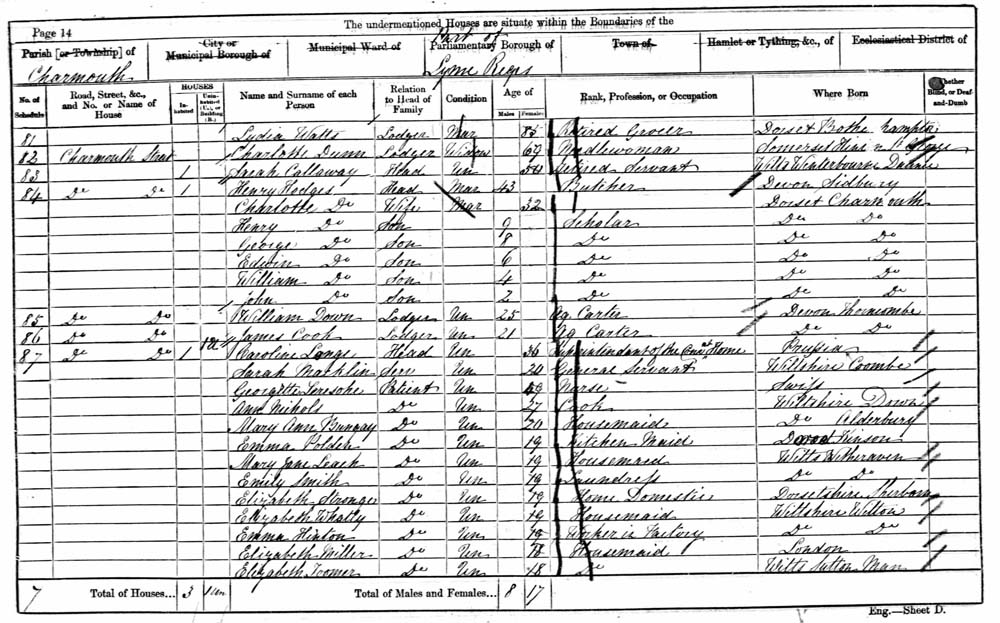 The undermentioned Houses are situate within the Boundaries of the
Page 14
Parish [or Township] of
Charmouth
City or Municipal Borough of
Municipal Ward of
Part of
Parliamentary Borough of
Lyme Regis
Town of
Hamlet or Tything, &c., of
Ecclesiastical District of
No. of Schedule
Road, Street, &c., and No. or Name of House
HOUSES
Inhabited
Uninhabited (U.), or Building (B.)
Name and Surname of each Person
Relation to Head of Family
Condition
Age of
Males
Females
Rank, Profession, or Occupation
Where Born
Whether Blind, or Deaf-and-Dumb
81 Lydia Watts Lodger Mar Retired Grocer Dorset
82 Charmouth Street Charlotte Dunn Lodger Widow Needlewoman Somerset
83 1 Sarah Callaway Head Un Retired Servant Wilts Winterbourne
84 Do Do 1 Henry Hedges Head Mar 43 Butcher Devon Sidbury
Charlotte Do Wife Mar 32 Dorset Charmouth
Henry Do Son 9 Scholar Do Do
George Do Son 8 Do Do Do
Edwin Do Son 6 Do Do Do
William Do Son 4 Do Do Do
John Do Son 2 Do Do Do
85 Do Do William Down Lodger Un 25 Ag Carter Devon
86 Do Do James Cook Lodger Un 21 Ag Carter Do Do
87 Do Do 1 Caroline Lange Head Un 36 Superintendant of the Home Prussia
Sarah Macklin Serv Un 20 General Servant Wiltshire Coombe
Georgette Patient Un Nurse Swiss
Ann Nichols Do Un 27 Cook Wiltshire Down
Mary Ann Do Un 20 Housemaid Do Alderbury
Emma Polden Do Un 19 Kitchen Maid Kinson
Mary Jane Leach Do Un 19 Housemaid Wilts
Emily Smith Do Un 19 Laundress Do Do
Elizabeth Do Un 19 Home Domestic Dorsetshire Sherborne
Elizabeth Whatly Do Un 19 Housemaid Wiltshire Wilton
Emma Hinton Do Un 19 Worker in Factory Do Do
Elizabeth Miller Do Un 18 Housemaid London
Elizabeth Toomer Do Un 18 Do Wilts Sutton Man
7 Total of Houses... 3 1 Un Total of Males and Females... 8 17
Eng.—Sheet D.